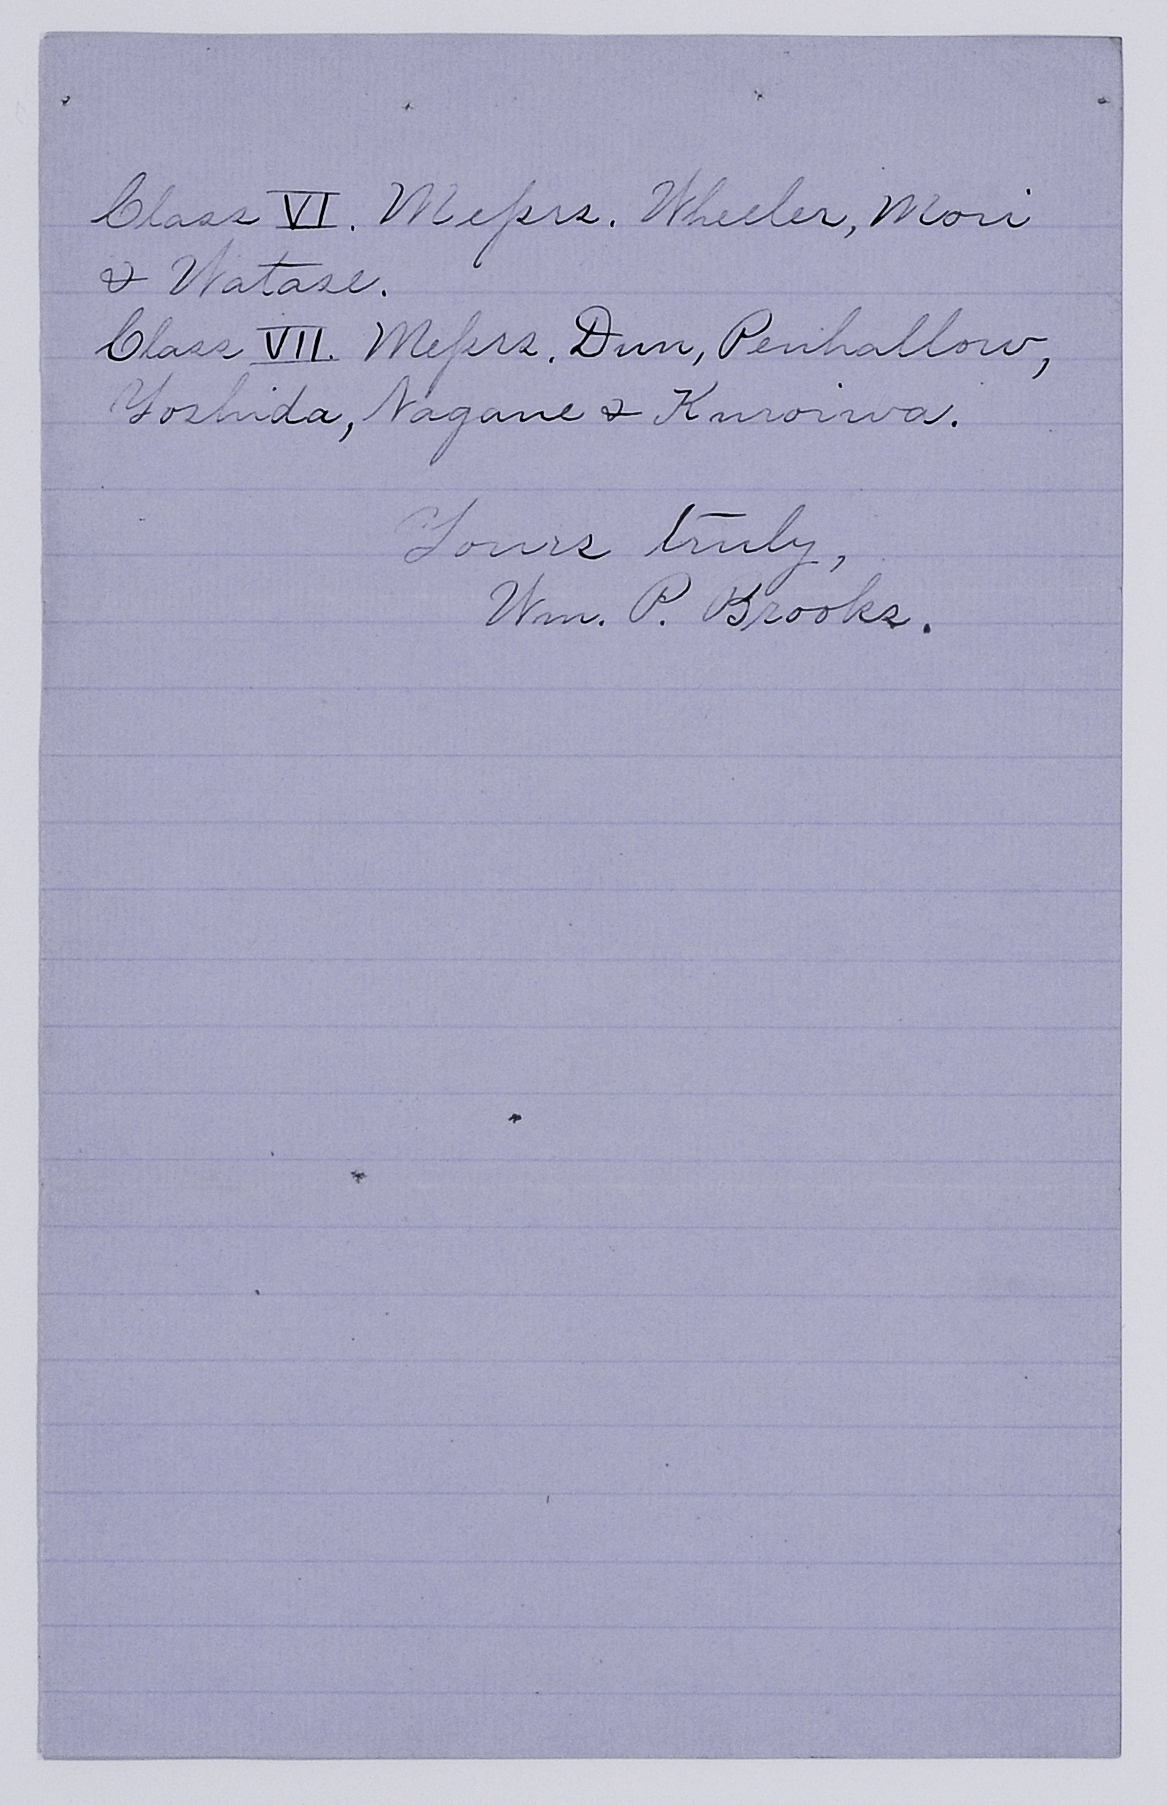 Class VI. Messrs. Wheeler, Mori
& Watase.
Class VII. Messrs. Dun, Penhallow,
Yoshida, Nagane & Kuroiwa.
Yours truly,
Wm. P. Brooks.